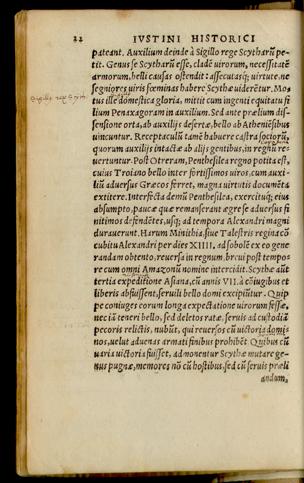 22 IVSTINI HISTORICI
pateant. Auxilium deinde à Sigillo rege Scytharũ pe-
tit. Genus se Scytharũ esse, cladẽ uirorum, necessitatẽ
armorum, belli causas ostendit: assecutaq; uirtute, ne
segniores uiris fœminas habere Scythæ uiderẽtur. Mo-
tus ille domestica gloria, mittit cum ingenti equitatu fi
lium Penaxagoram in auxilium. Sed ante prælium dis-
sensione orta, ab auxilijs desertæ, bello ab Atheniẽsibus
uincuntur. Receptaculũ tamẽ habuere castra sociorũ,
quorum auxilio intactæ ab alijs gentibus, in regnũ re-
uertuntur. Post Otreram, Penthesilea regno potita est,
cuius Troiano bello inter fortissimos uiros, cum auxi-
liũ aduersus Græcos ferret, magna uirtutis documẽta
extitere. Interfecta demũ Penthesilea, exercituq; eius
absumpto, paucæ quæ remanserant ægre se aduersus fi
nitimos defendẽtes, usq; ad tempora Alexandri magni
durauerunt. Harum Minithia, siue Talestris regina cõ
cubitu Alexandri per dies XIIII, ad sobolẽ ex eo gene
randam obtento, reuersa in regnum, breui post tempo
re cum omni Amazonũ nomine intercidit. Scythæ aũt
tertia expeditione Asiana, cũ annis VII. à cõiugibus et
liberis abfuissent, seruili bello domi excipiũtur. Quip
pe coniuges eorum longa expectatione uirorum fessæ,
nec iã teneri bello, sed deletos ratæ, seruis ad custodiã
pecoris relictis, nubũt, qui reuersos cũ uictoria domi-
nos, uelut aduenas armati finibus prohibẽt. Quibus cũ
uaria uictoria fuisset, admonentur Scythæ mutare ge-
nus pugnæ, memores nõ cũ hostibus, sed cũ seruis præli
andum,